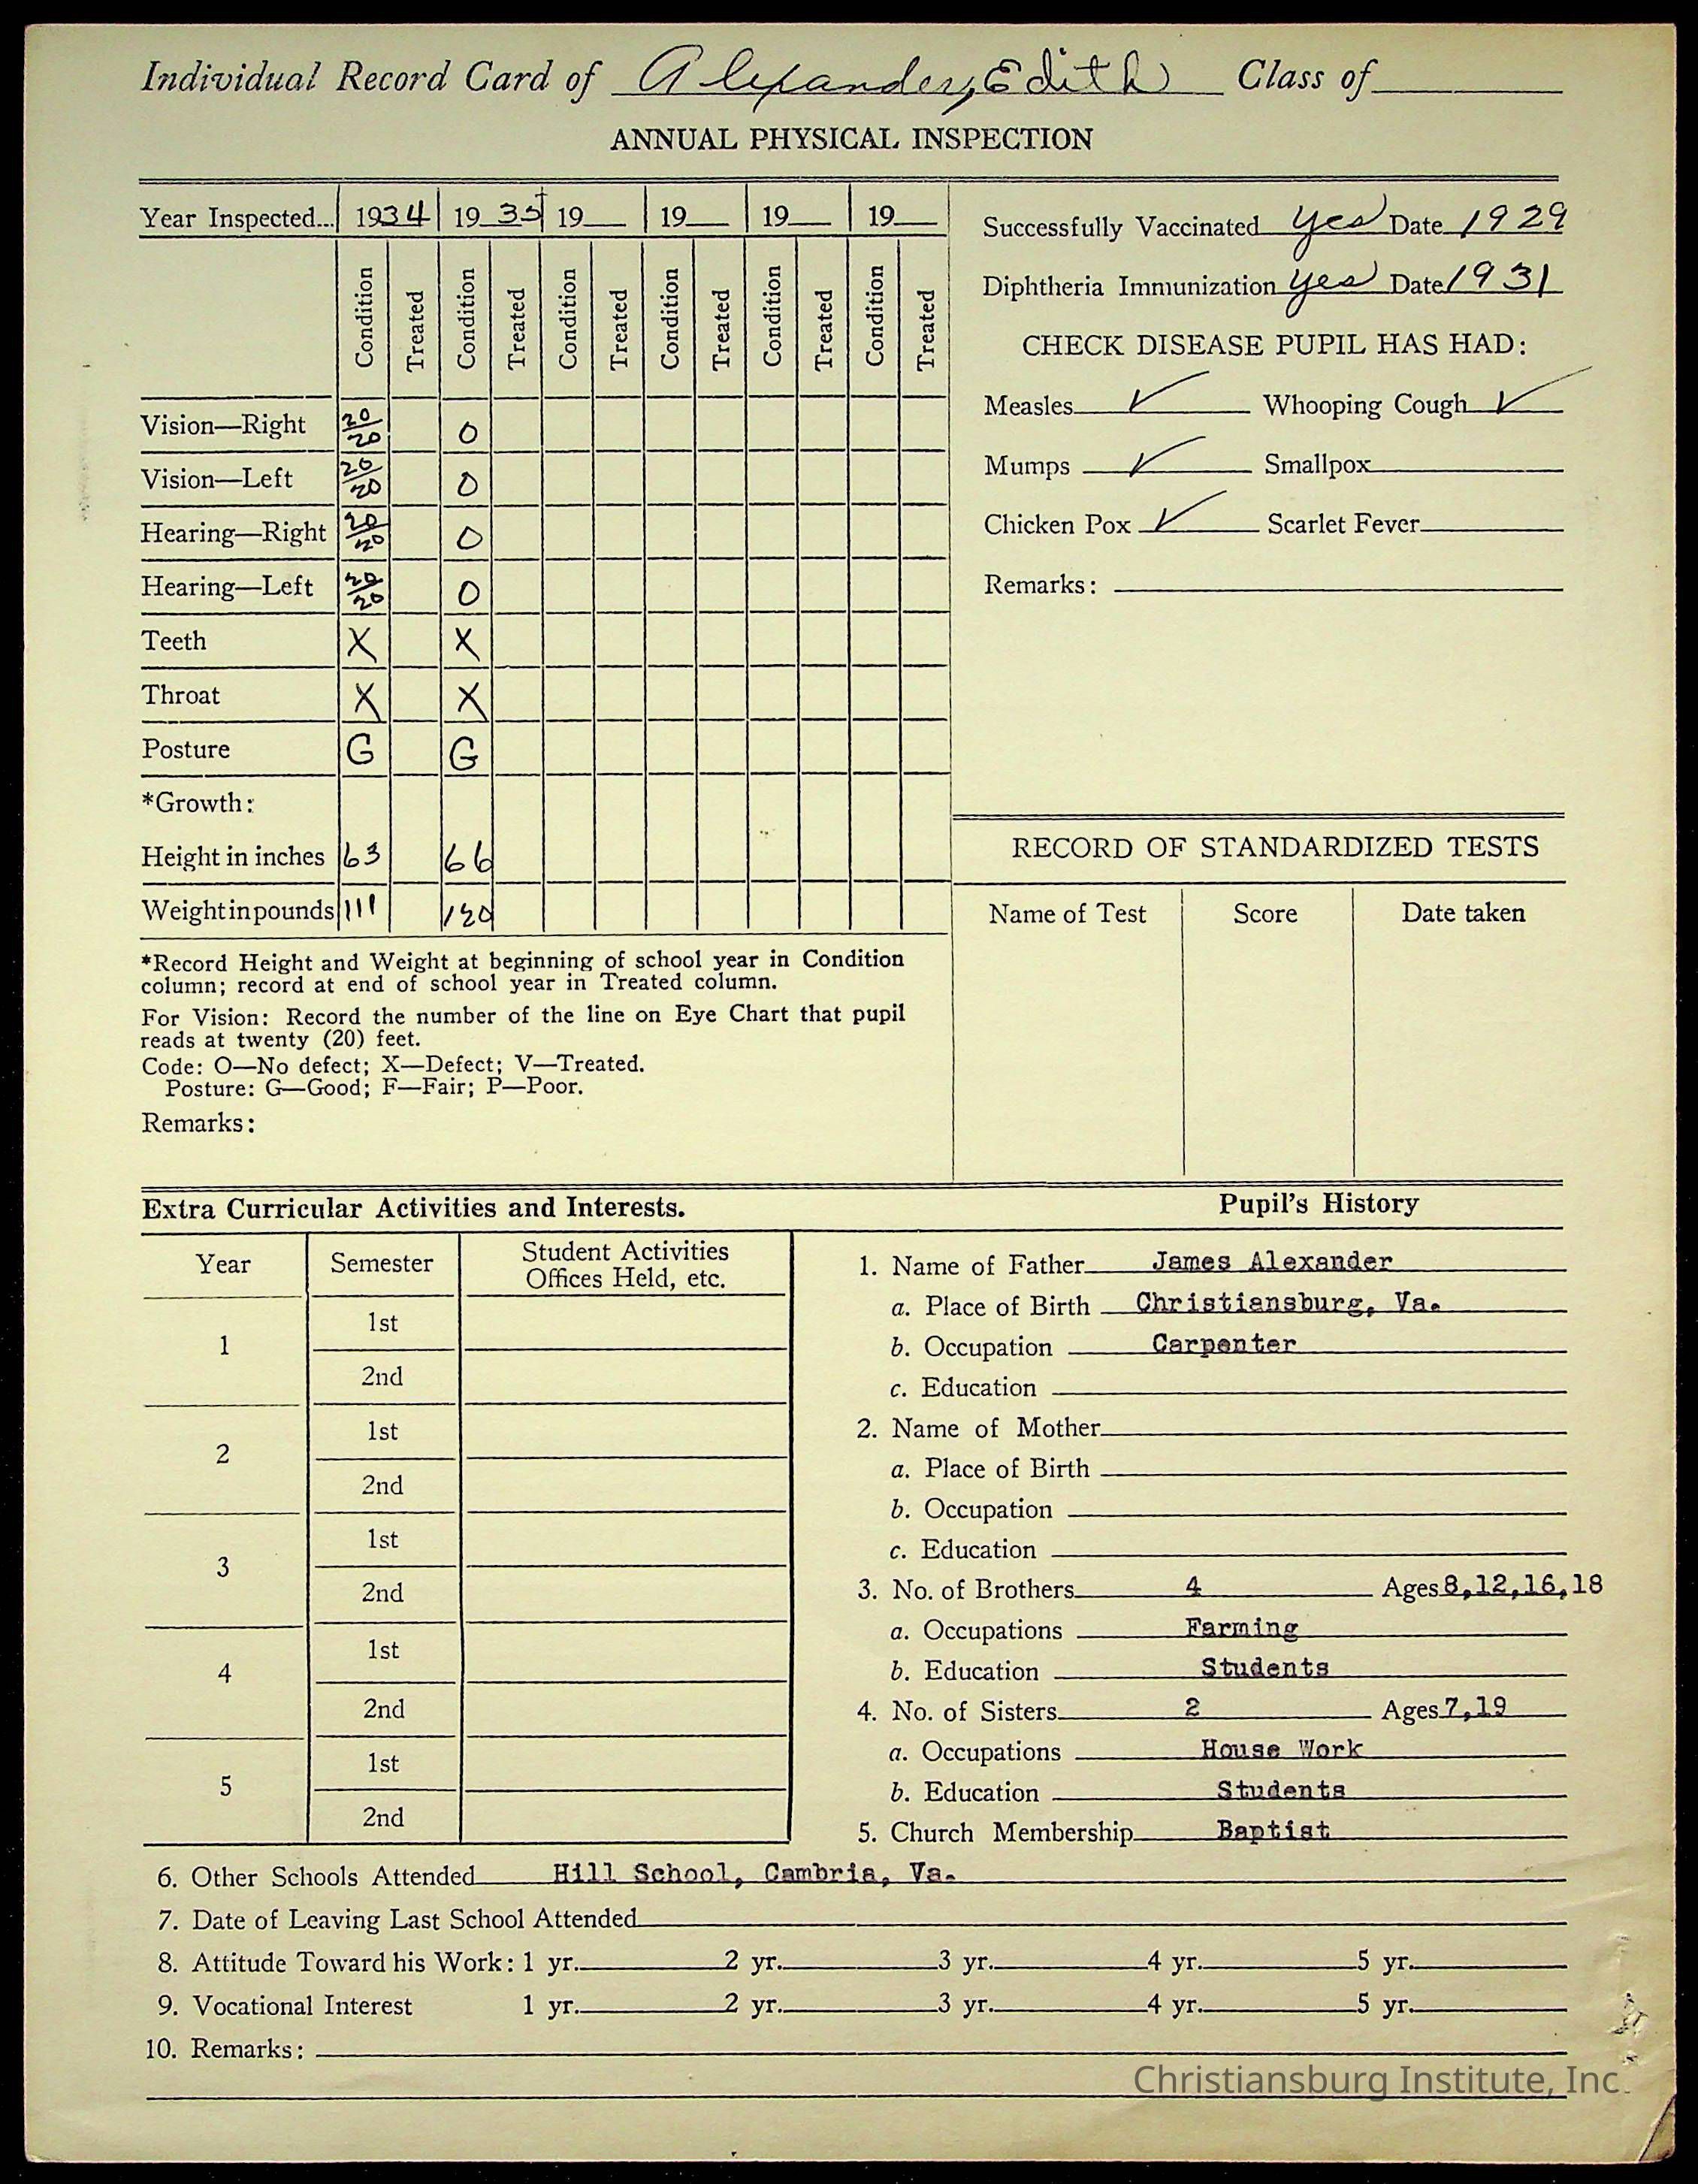 Individual Record Card of Alexander, Edith Class of
ANNUAL PHYSICAL INSPECTION
Year Inspected... 1934 19 35 19 19 19 19
Condition Treated Condition Treated Condition Treated Condition Treated Condition Treated Condition Treated
Vision—Right 20/20 O
Vision—Left 20/20 O
Hearing—Right 20/20 O
Hearing—Left 20/20 O
Teeth X X
Throat X X
Posture G G
*Growth:
Height in inches 63 66
Weight in pounds 111 120
*Record Height and Weight at beginning of school year in Condition
column; record at end of school year in Treated column.
For Vision: Record the number of the line on Eye Chart that pupil
reads at twenty (20) feet.
Code: O—No defect; X—Defect; V—Treated.
Posture: G—Good; F—Fair; P—Poor.
Remarks:
Successfully Vaccinated yes Date 1929
Diphtheria Immunization yes Date 1931
CHECK DISEASE PUPIL HAS HAD:
Measles ✓ Whooping Cough ✓
Mumps ✓ Smallpox
Chicken Pox ✓ Scarlet Fever
Remarks:
RECORD OF STANDARDIZED TESTS
Name of Test Score Date taken
Extra Curricular Activities and Interests.
Year Semester Student Activities
Offices Held, etc.
1 1st
2nd
2 1st
2nd
3 1st
2nd
4 1st
2nd
5 1st
2nd
Pupil's History
1. Name of Father James Alexander
a. Place of Birth Christiansburg, Va.
b. Occupation Carpenter
c. Education
2. Name of Mother
a. Place of Birth
b. Occupation
c. Education
3. No. of Brothers 4 Ages 8,12,16,18
a. Occupations Farming
b. Education Students
4. No. of Sisters 2 Ages 7,19
a. Occupations House Work
b. Education Students
5. Church Membership Baptist
6. Other Schools Attended Hill School, Cambria, Va.
7. Date of Leaving Last School Attended
8. Attitude Toward his Work: 1 yr. 2 yr. 3 yr. 4 yr. 5 yr.
9. Vocational Interest 1 yr. 2 yr. 3 yr. 4 yr. 5 yr.
10. Remarks:
Christiansburg Institute, Inc.